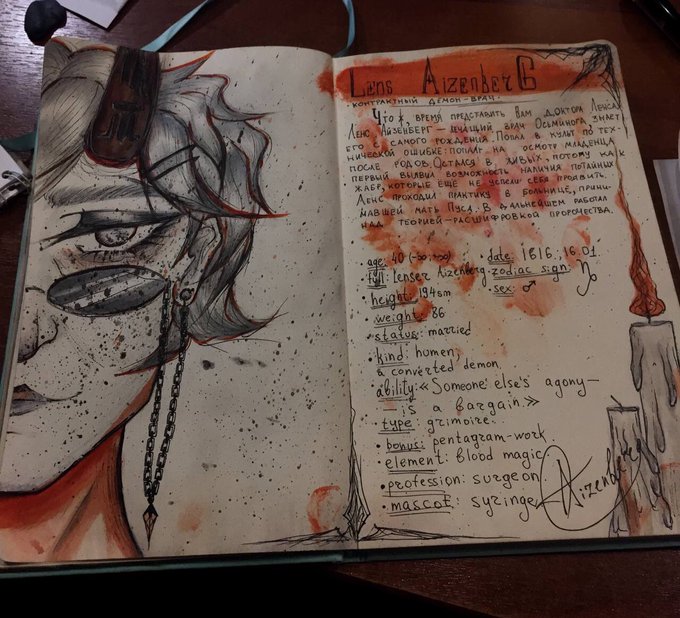 Lens AizenberG
контрактный демон-врач.
Что ж, время представить вам доктора Ленса
Ленс Айзенберг — лечащий врач Осьминога, знает
его с самого рождения. Попал в культ по тех-
нической ошибке: попал на осмотр младенца
после родов. Остался в живых, потому как
первый выявил возможность наличия потайных
жабр, которые ещё не успели себя проявить.
Ленс проходил практику в больнице, прини-
мавшей мать Пуса. В дальнейшем работал
над теорией-расшифровкой пророчества.
• age: 40 (-∞;+∞) • date: 1816; 16.01
full: Lenser Aizenberg • zodiac sign: ♑
• height: 194sm • sex: ♂
weight: 86
• status: married
• kind: humen,
a converted demon.
ability: «Someone else's agony —
is a bargain.»
• type: grimoire.
• bonus: pentagram-work.
• element: blood magic
• profession: surgeon
• mascot: syringe
Aizenberg